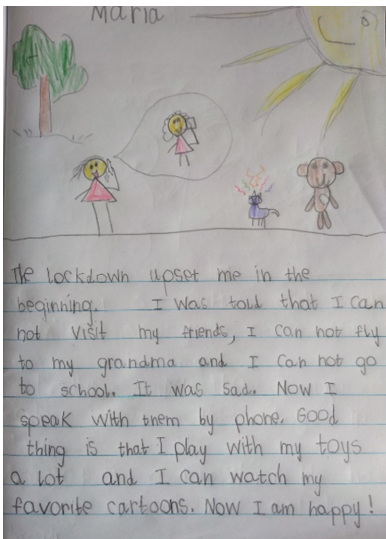 Maria
The lockdown upset me in the
beginning. I was told that I can
not visit my friends, I can not fly
to my grandma and I can not go
to school. It was sad. Now I
speak with them by phone. Good
thing is that I play with my toys
a lot and I can watch my
favorite cartoons. Now I am happy!